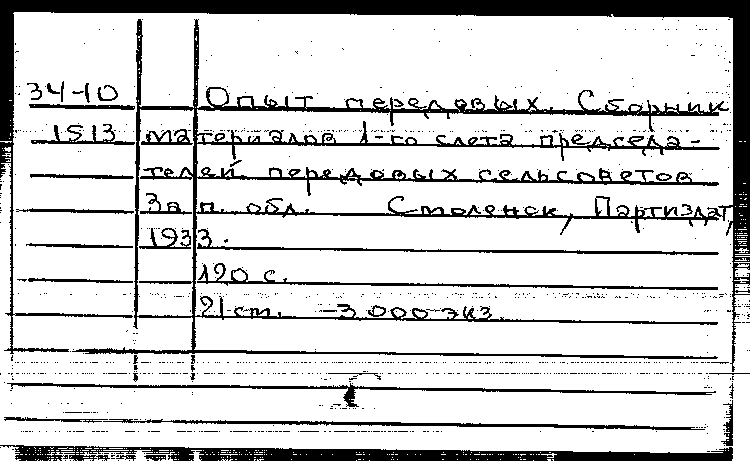 34-10 Опыт передовых. Сборник
1513 материалов 1-го слета председа-
телей передовых сельсоветов
Зап. обл. Смоленск, Партиздат,
1933.
190 с.
21 ст. -3.000 экз.